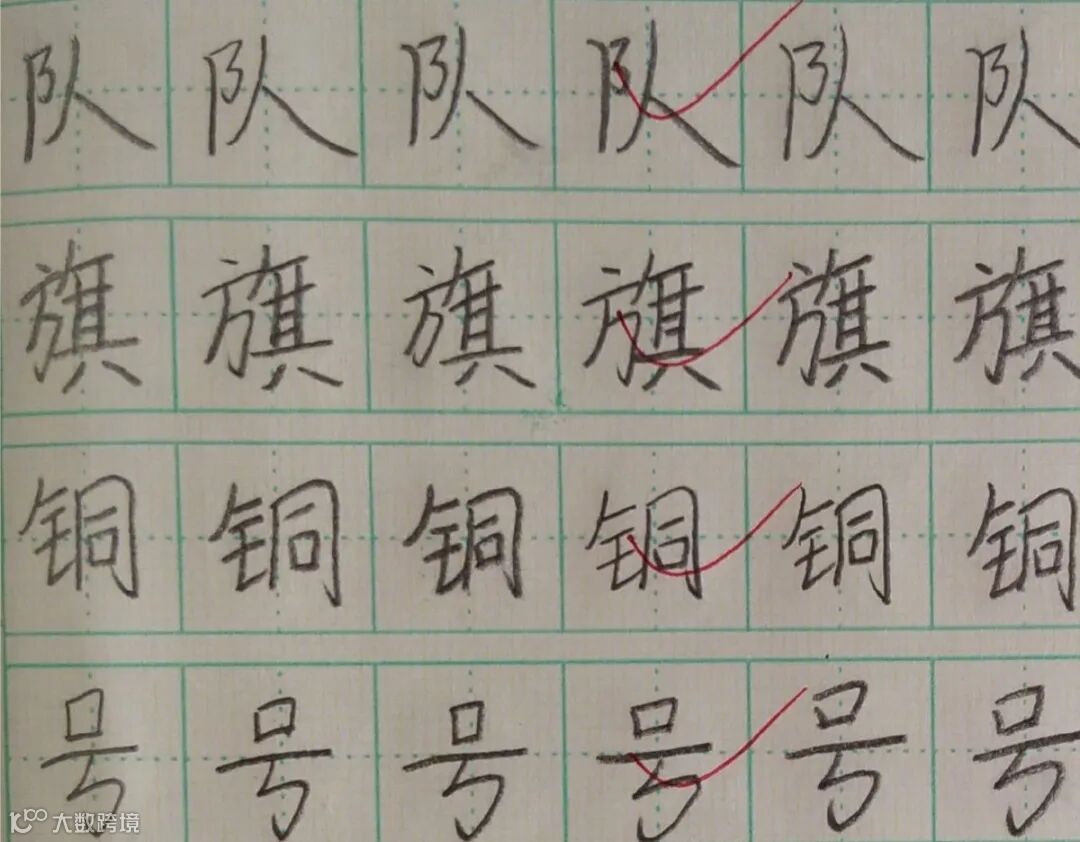 队队队队队队
旗旗旗旗旗旗
铜铜铜铜铜铜
号号号号号号
大数跨境